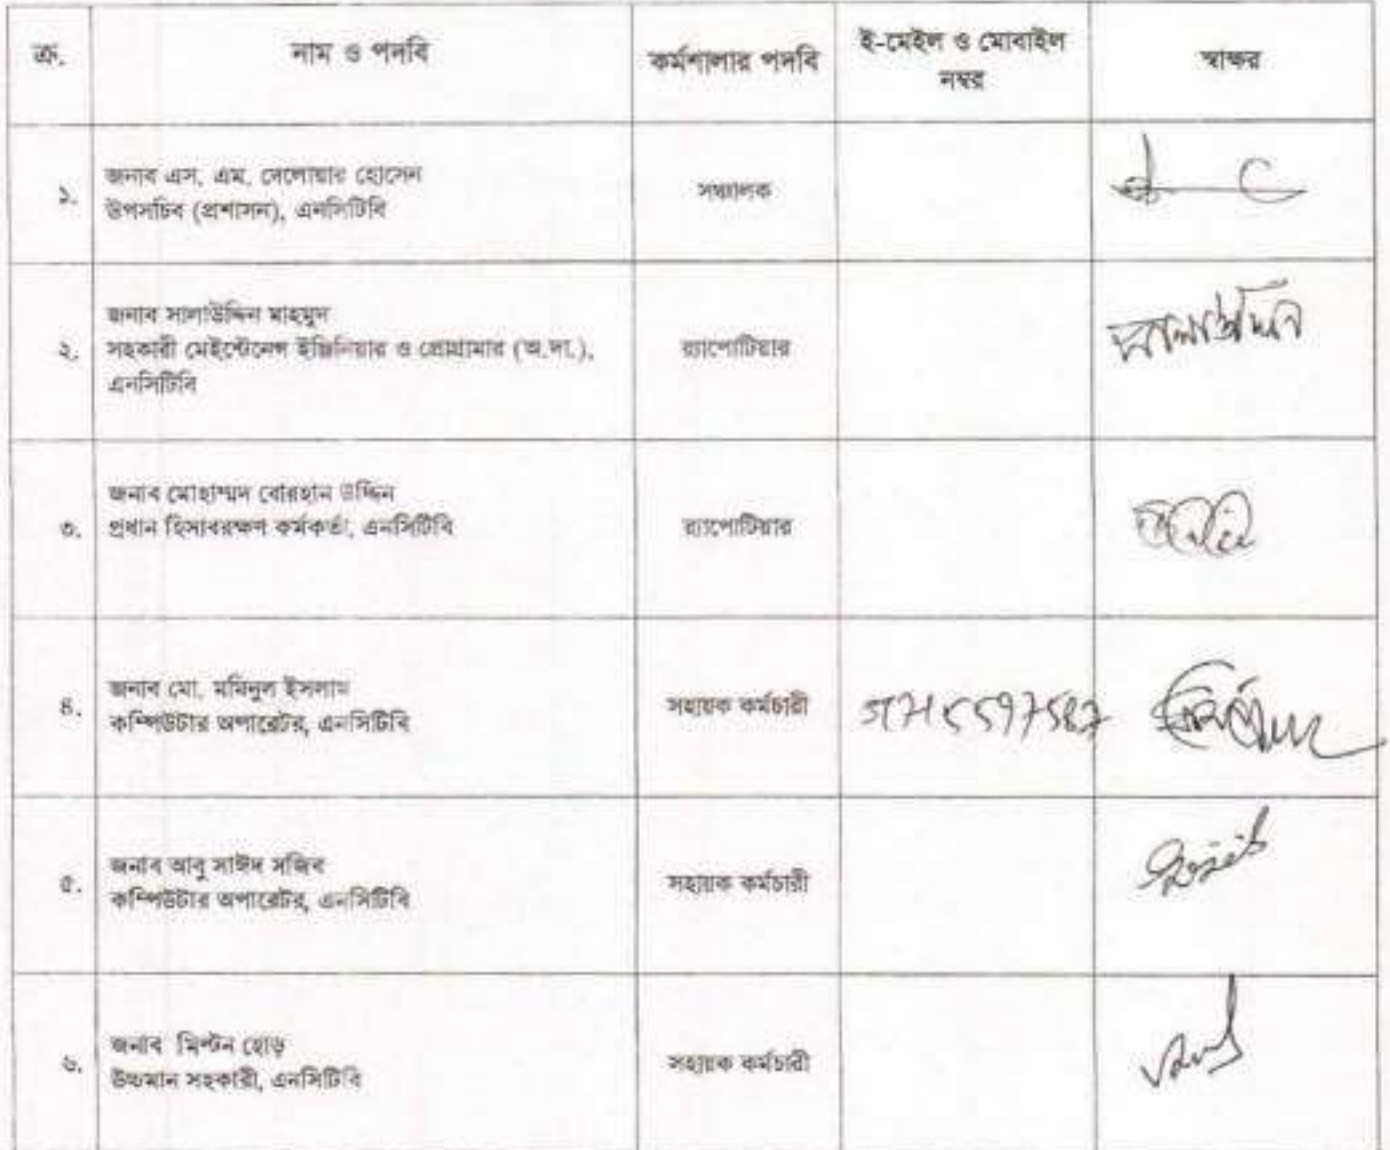 ক্র. নাম ও পদবি কর্মশালার পদবি ই-মেইল ও মোবাইল নম্বর স্বাক্ষর
১. জনাব এস. এম. দেলোয়ার হোসেন
উপসচিব (প্রশাসন), এনসিটিবি
সঞ্চালক
২. জনাব সালাউদ্দিন মাহমুদ
সহকারী মেইন্টেনেন্স ইঞ্জিনিয়ার ও প্রোগ্রামার (অ.দা.),
এনসিটিবি
র‍্যাপোটিয়ার
সালাউদ্দিন
৩. জনাব মোহাম্মদ বোরহান উদ্দিন
প্রধান হিসাবরক্ষণ কর্মকর্তা, এনসিটিবি
র‍্যাপোটিয়ার
৪. জনাব মো. মমিনুল ইসলাম
কম্পিউটার অপারেটর, এনসিটিবি
সহায়ক কর্মচারী
৫. জনাব আবু সাঈদ সজিব
কম্পিউটার অপারেটর, এনসিটিবি
সহায়ক কর্মচারী
৬. জনাব মিল্টন হোড়
উচ্চমান সহকারী, এনসিটিবি
সহায়ক কর্মচারী